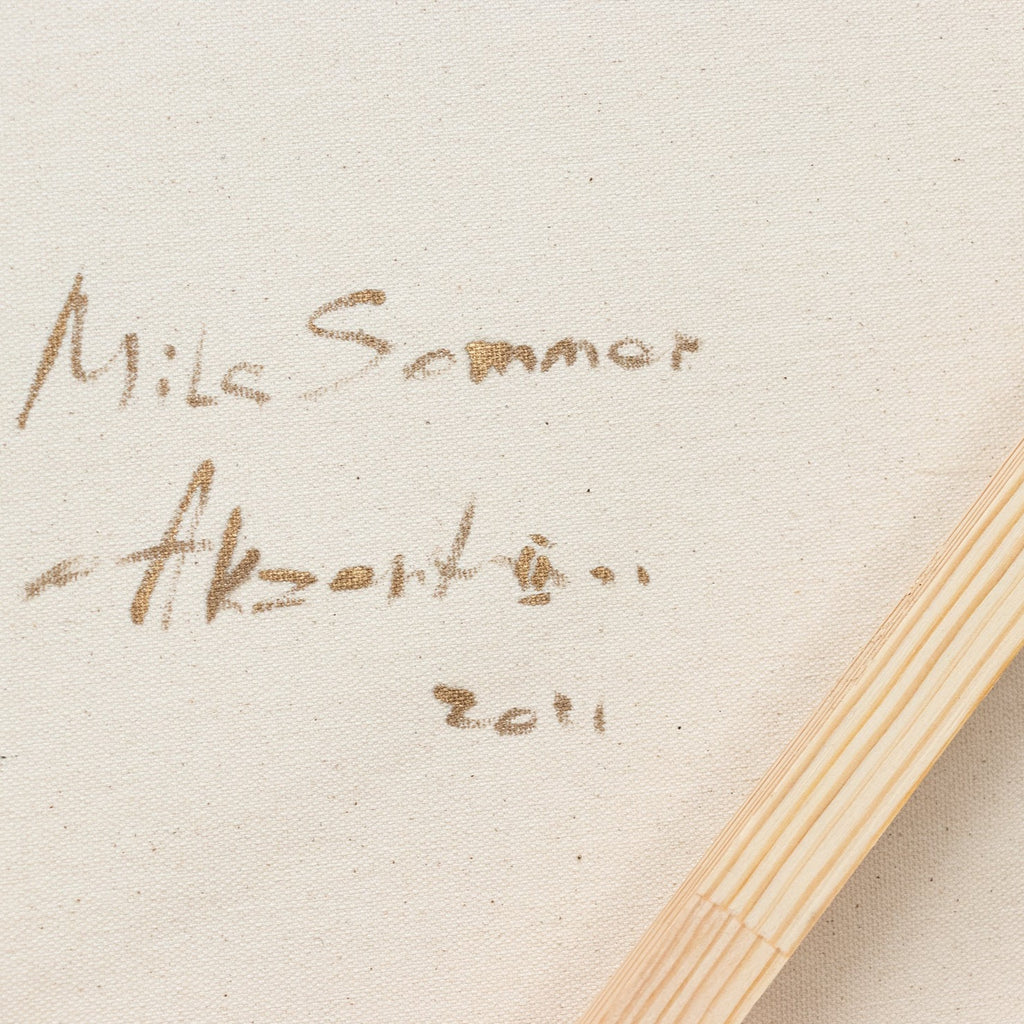 Mila Sommer
Akzent
2011